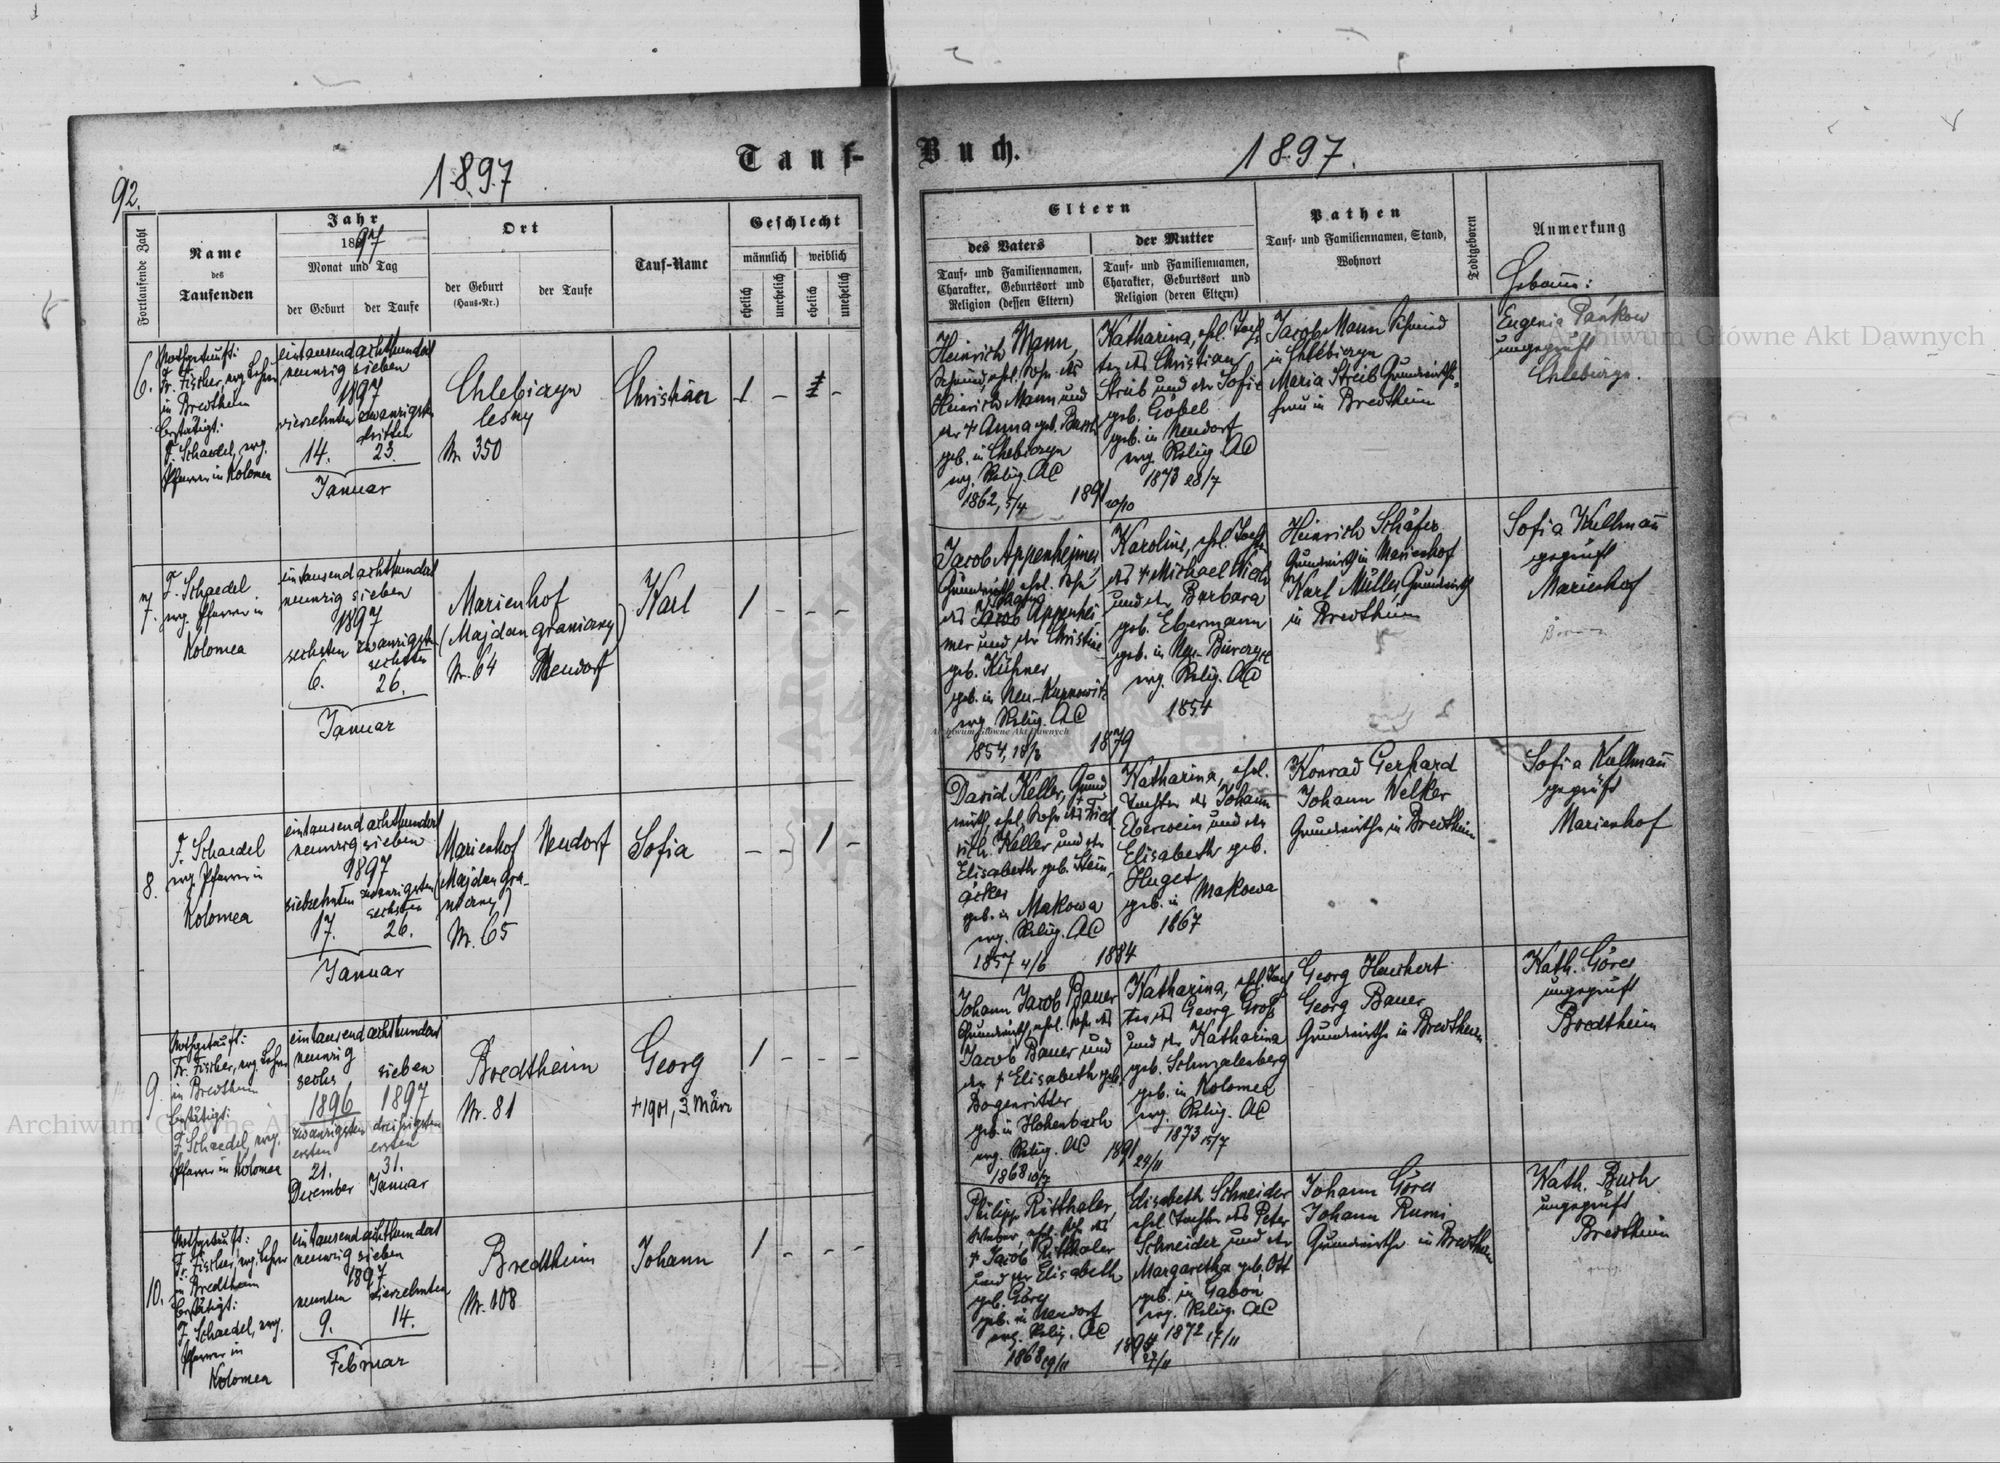 92.
1897
Tauf-
Fortlaufende Zahl
Name
des
Taufenden
Jahr
1897
Monat und Tag
der Geburt
der Taufe
Ort
der Geburt
(Haus-Nr.)
der Taufe
Tauf-Name
Geschlecht
männlich
weiblich
ehelich
unehelich
ehelich
unehelich
6.
Nothgetauft:
Fr. Fischer, evg. Lehrer
in Bredtheim
bestätigt:
F. Schaedel, evg.
Pfarrer in Kolomea
eintausendachthundert
neunzig sieben
1897
vierzehnten zwanzigsten
dritten
14. 23.
Januar
Chlebiczyn
lesny
Nr. 350
Christian
1 - 1 -
7.
F. Schaedel
evg. Pfarrer in
Kolomea
eintausendachthundert
neunzig sieben
1897
sechsten zwanzigsten
sechsten
6. 26.
Januar
Marienhof
(Majdan graniczny)
Nr. 64 Neudorf
Karl
1 - - -
8.
F. Schaedel
evg. Pfarrer in
Kolomea
eintausendachthundert
neunzig sieben
1897
siebzehnten zwanzigsten
sechsten
17. 26.
Januar
Marienhof Neudorf
(Majdan gra-
niczny)
Nr. 65
Sofia
- - 1 -
9.
Nothgetauft:
Fr. Fischer, evg. Lehrer
in Bredtheim
bestätigt:
F. Schaedel, evg.
Pfarrer in Kolomea
eintausendachthundert
neunzig
sechs sieben
1896 1897
zwanzigsten dreißigsten
ersten ersten
21. 31.
December Januar
Bredtheim
Nr. 81
Georg
+ 1901, 3. März
1 - - -
10.
Nothgetauft:
Fr. Fischer, evg. Lehrer
in Bredtheim
bestätigt:
F. Schaedel, evg.
Pfarrer in
Kolomea
eintausendachthundert
neunzig sieben
1897
neunten vierzehnten
9. 14.
Februar
Bredtheim
Nr. 108
Johann
1 - - -
Buch.
1897.
Eltern
des Vaters
Tauf- und Familiennamen,
Charakter, Geburtsort und
Religion (dessen Eltern)
der Mutter
Tauf- und Familiennamen,
Charakter, Geburtsort und
Religion (deren Eltern)
Pathen
Tauf- und Familiennamen, Stand,
Wohnort
Todtgeboren
Anmerkung
Hebamme:
Heinrich Mann,
Schmied, ehl. Sohn des
Heinrich Mann und
der + Anna geb.
geb. in Chlebiczyn
evg. Relig. AC
1862, 5/4
1891 20/10
Katharina, ehl. Toch-
ter des Christian
Streib und der Sofie
geb. Göbel
geb. in Neudorf
evg. Relig. AC
1873 28/7
Jacob Mann Schmied
in Chlebiczyn
Maria Streib Grundwirths-
frau in Bredtheim
Eugenia Pańkow
ungeprüft
Jacob Appenheimer
Grundwirth, ehl. Sohn
des Jacob Appenhei-
mer und der Christine
geb. Kühner
geb. in Neu-
evg. Relig. AC
1854, 18/3
1879
Karoline, ehl. Tochter
des + Michael
und der Barbara
geb. Ebermann
geb. in
evg. Relig. AC
1854
Heinrich Schäfer
Grundwirth in Marienhof
Karl Müller, Grundwirth
in Bredtheim
Sofia Kullmann
geprüft
Marienhof
David Keller, Grund-
wirth, ehl. Sohn des Fried-
rich Keller und der
Elisabeth geb. Stein-
äcker
geb. in Makowa
evg. Relig. AC
1857 4/6
1884
Katharina, ehl.
Tochter des Johann
Eberwein und der
Elisabeth geb.
Huget
geb. in Makowa
1867
Konrad Gerhard
Johann Welker
Grundwirthe in Bredtheim
Sofia Kullmann
geprüft
Marienhof
Johann Jacob Bauer
Grundwirth, ehl. Sohn des
Jacob Bauer und
der + Elisabeth geb.
Dogenritter
geb. in Hohenbach
evg. Relig. AC
1868 10/7
1891 24/11
Katharina, ehl. Toch-
ter des Georg Groß
und der Katharina
geb. Schmalenberg
geb. in Kolomea
evg. Relig. AC
1873 15/7
Georg Haushert
Georg Bauer
Grundwirthe in Bredtheim
Kath. Göres
ungeprüft
Bredtheim
Philipp Ritthaler,
Weber, ehl. Sohn des
+ Jacob Ritthaler
und der Elisabeth
geb. Göres
geb. in Neudorf
evg. Relig. AC
1868 19/11
Elisabeth Schneider
ehl. Tochter des Peter
Schneider und der
Margaretha geb. Ott
geb. in Gaboń
evg. Relig. AC
1872 17/11
Johann Göres
Johann Rumi
Grundwirthe in Bredtheim
Kath. Busch
ungeprüft
Bredtheim
Archiwum Główne Akt Dawnych
Archiwum Główne Akt Dawnych
Archiwum Główne Akt Dawnych